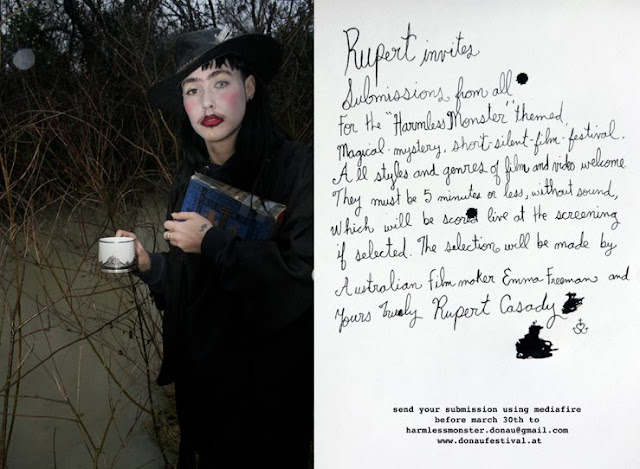 Rupert invites
Submissions from all
For the "Harmless Monster" themed,
Magical-mystery, short-silent-film-festival.
All styles and genres of film and video welcome
They must be 5 minutes or less, without sound,
Which will be scored live at the screening
if selected. The selection will be made by
Australian Film maker Emma Freeman and
Yours Truely Rupert Casady
send your submission using mediafire
before march 30th to
harmlessmonster.donau@gmail.com
www.donaufestival.at